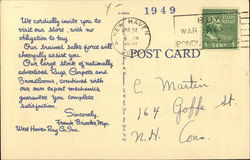 1949
We cordially invite you to
visit our store, with no
obligation to buy.
Our trained sales force will
cheerfully assist you.
Our large stock of nationally
advertised Rugs, Carpets, and
Broadlooms, combined with
our own expert mechanics
guarantee you complete
satisfaction.
Sincerely,
Frank Brooks, Mgr.
West Haven Rug Co., Inc.
HAVEN
BUY
WAR
1 CENT
POST CARD
C. Martin
164 Goffe St.
N.H. Conn.